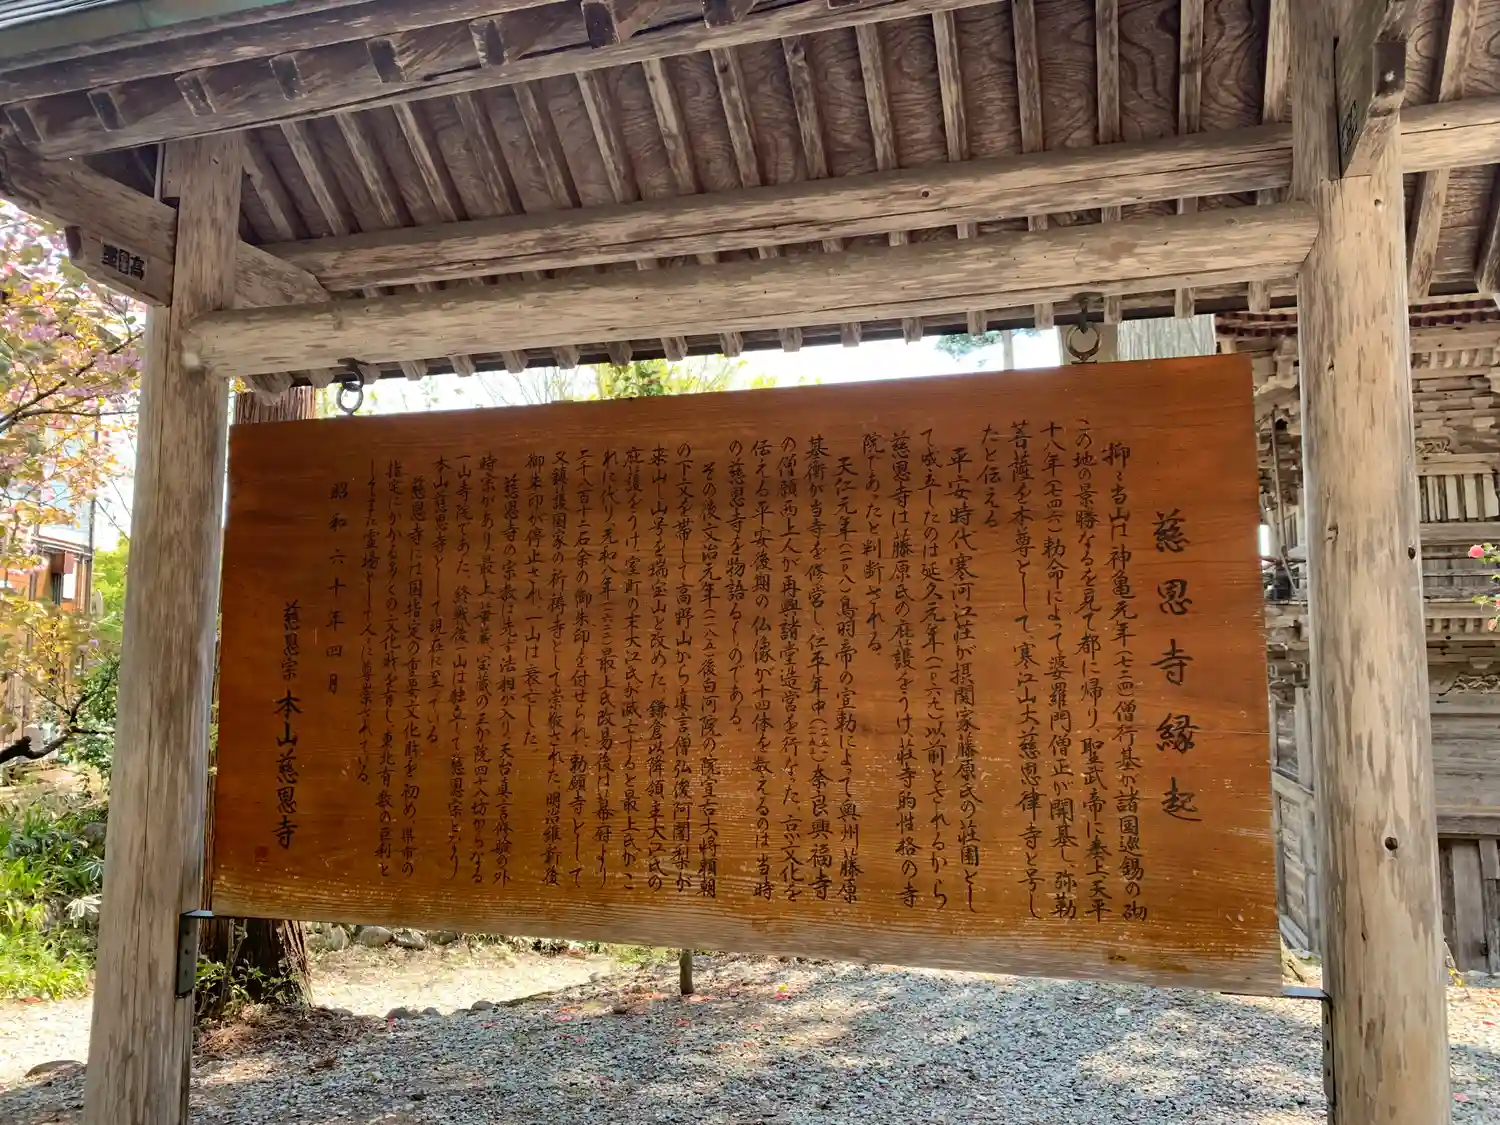 慈恩寺縁起
抑々当山は神亀元年(七二四)僧行基が諸国巡錫の砌
この地の景勝なるを見て都に帰り、聖武帝に奏上天平
十八年(七四六)勅命によって婆羅門僧正が開基し、弥勒
菩薩を本尊として、寒江山大慈恩律寺と号し
たと伝える
平安時代寒河江荘が摂関家藤原氏の荘園とし
て成立したのは延久元年(一〇六九)以前とされるから
慈恩寺は藤原氏の庇護をうけ荘寺的性格の寺
院であったと判断される。
天仁元年(一一〇八)鳥羽帝の宣勅によって奥州藤原
基衡が当寺を修営し、仁平年中(一一五一)奈良興福寺
の僧願西上人が再興諸堂造営を行なった、京文化を
伝える平安後期の仏像が十四体を数えるのは当時
の慈恩寺を物語るものである。
その後文治元年(一一八五)後白河院の院宣右大将頼朝
の下文を帯して高野山から真言僧弘俊阿闍梨が
来山し山号を瑞宝山と改めた。鎌倉以降領主大江氏の
庇護をうけ、室町の末大江氏が滅亡すると最上氏がこ
れに代り、元和八年(一六二二)最上氏改易後は幕府より
二千八百十二石余の御朱印を付せられ、勅願寺として、
又鎮護国家の祈祷寺として崇敬された、明治維新後
御朱印が停止され、一山は衰亡した。
慈恩寺の宗教は先ず法相が入り、天台真言修験の外
時宗があり、最上、華蔵、宝蔵の三か院四十八坊からなる
一山寺院であった、終戦後一山は独立して慈恩宗となり
本山慈恩寺として現在に至っている
慈恩寺には国指定の重要文化財を初め、県市の
指定にかかる多くの文化財を有し、東北有数の巨刹と
してまた霊場として人に尊崇されている。
昭和六十年四月
慈恩宗 本山慈恩寺